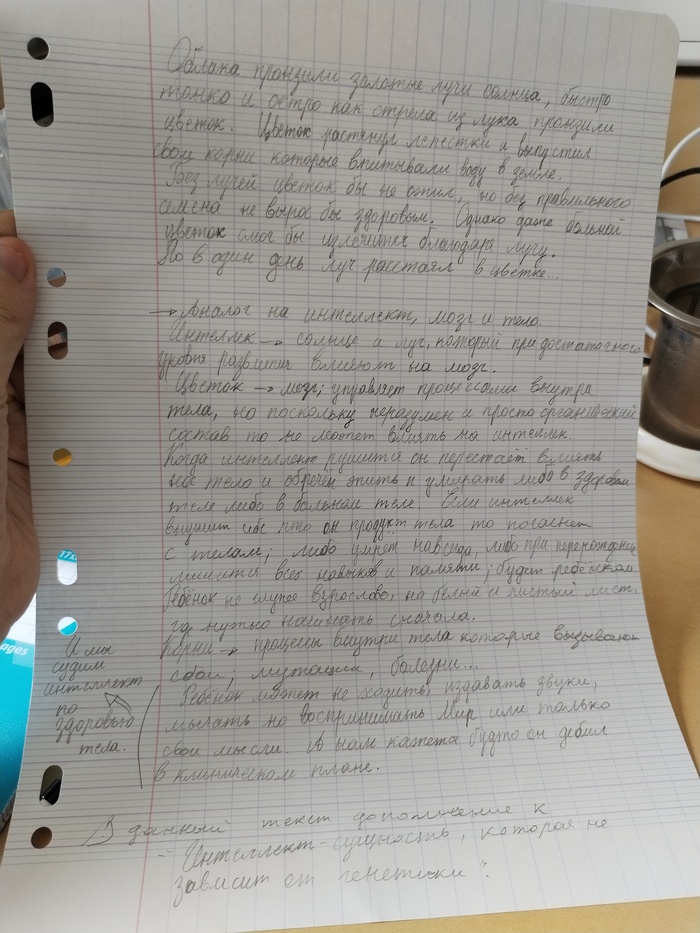 Облака пронзили золотые лучи солнца, быстро
тонко и остро как стрела из лука пронзили
цветок. Цветок растянул лепестки и выпустил
свои корни которые впитывали воду в земле.
Без лучей цветок бы не ожил, но без правильного
семена не вырос бы здоровым. Однако даже больной
цветок смог бы излечится благодаря лучу.
Но в один день луч расстаял в цветке...
→ Аналог на интеллект, мозг и тело.
Интеллек → солнце а луч, который при достаточного
уровня развития влияют на мозг.
Цветок → мозг; управляет процессами внутри
тела, но поскольку неразумен и просто органический
состав то не может влиять на интеллек.
Когда интеллект рушится он перестаёт влиять
на тело и обречён жить и умирать либо в здоровом
теле либо в больном теле. Если интеллек
внушит себе что он продукт тела то погаснет
с телом; либо умрёт навсегда, либо при перерождение
лишится всех навыков и памяти; будет ребёнком.
Ребёнок не глупее взрослово, но белый и чистый лист,
где нужно начинать сначала.
Корни → процессы внутри тела которые вызывают
сбои, мутации, болезни...
Ребёнок может не ходить, издавать звуки,
мычать но воспринимать Мир или только
свои мысли. А нам кажется будто он дебил
в клиническом плане.
И мы
судим
интеллект
по
здоровью
тела.
В данный текст дополнение к
"Интеллект-сущность, которая не
зависит от генетики".
17
ages